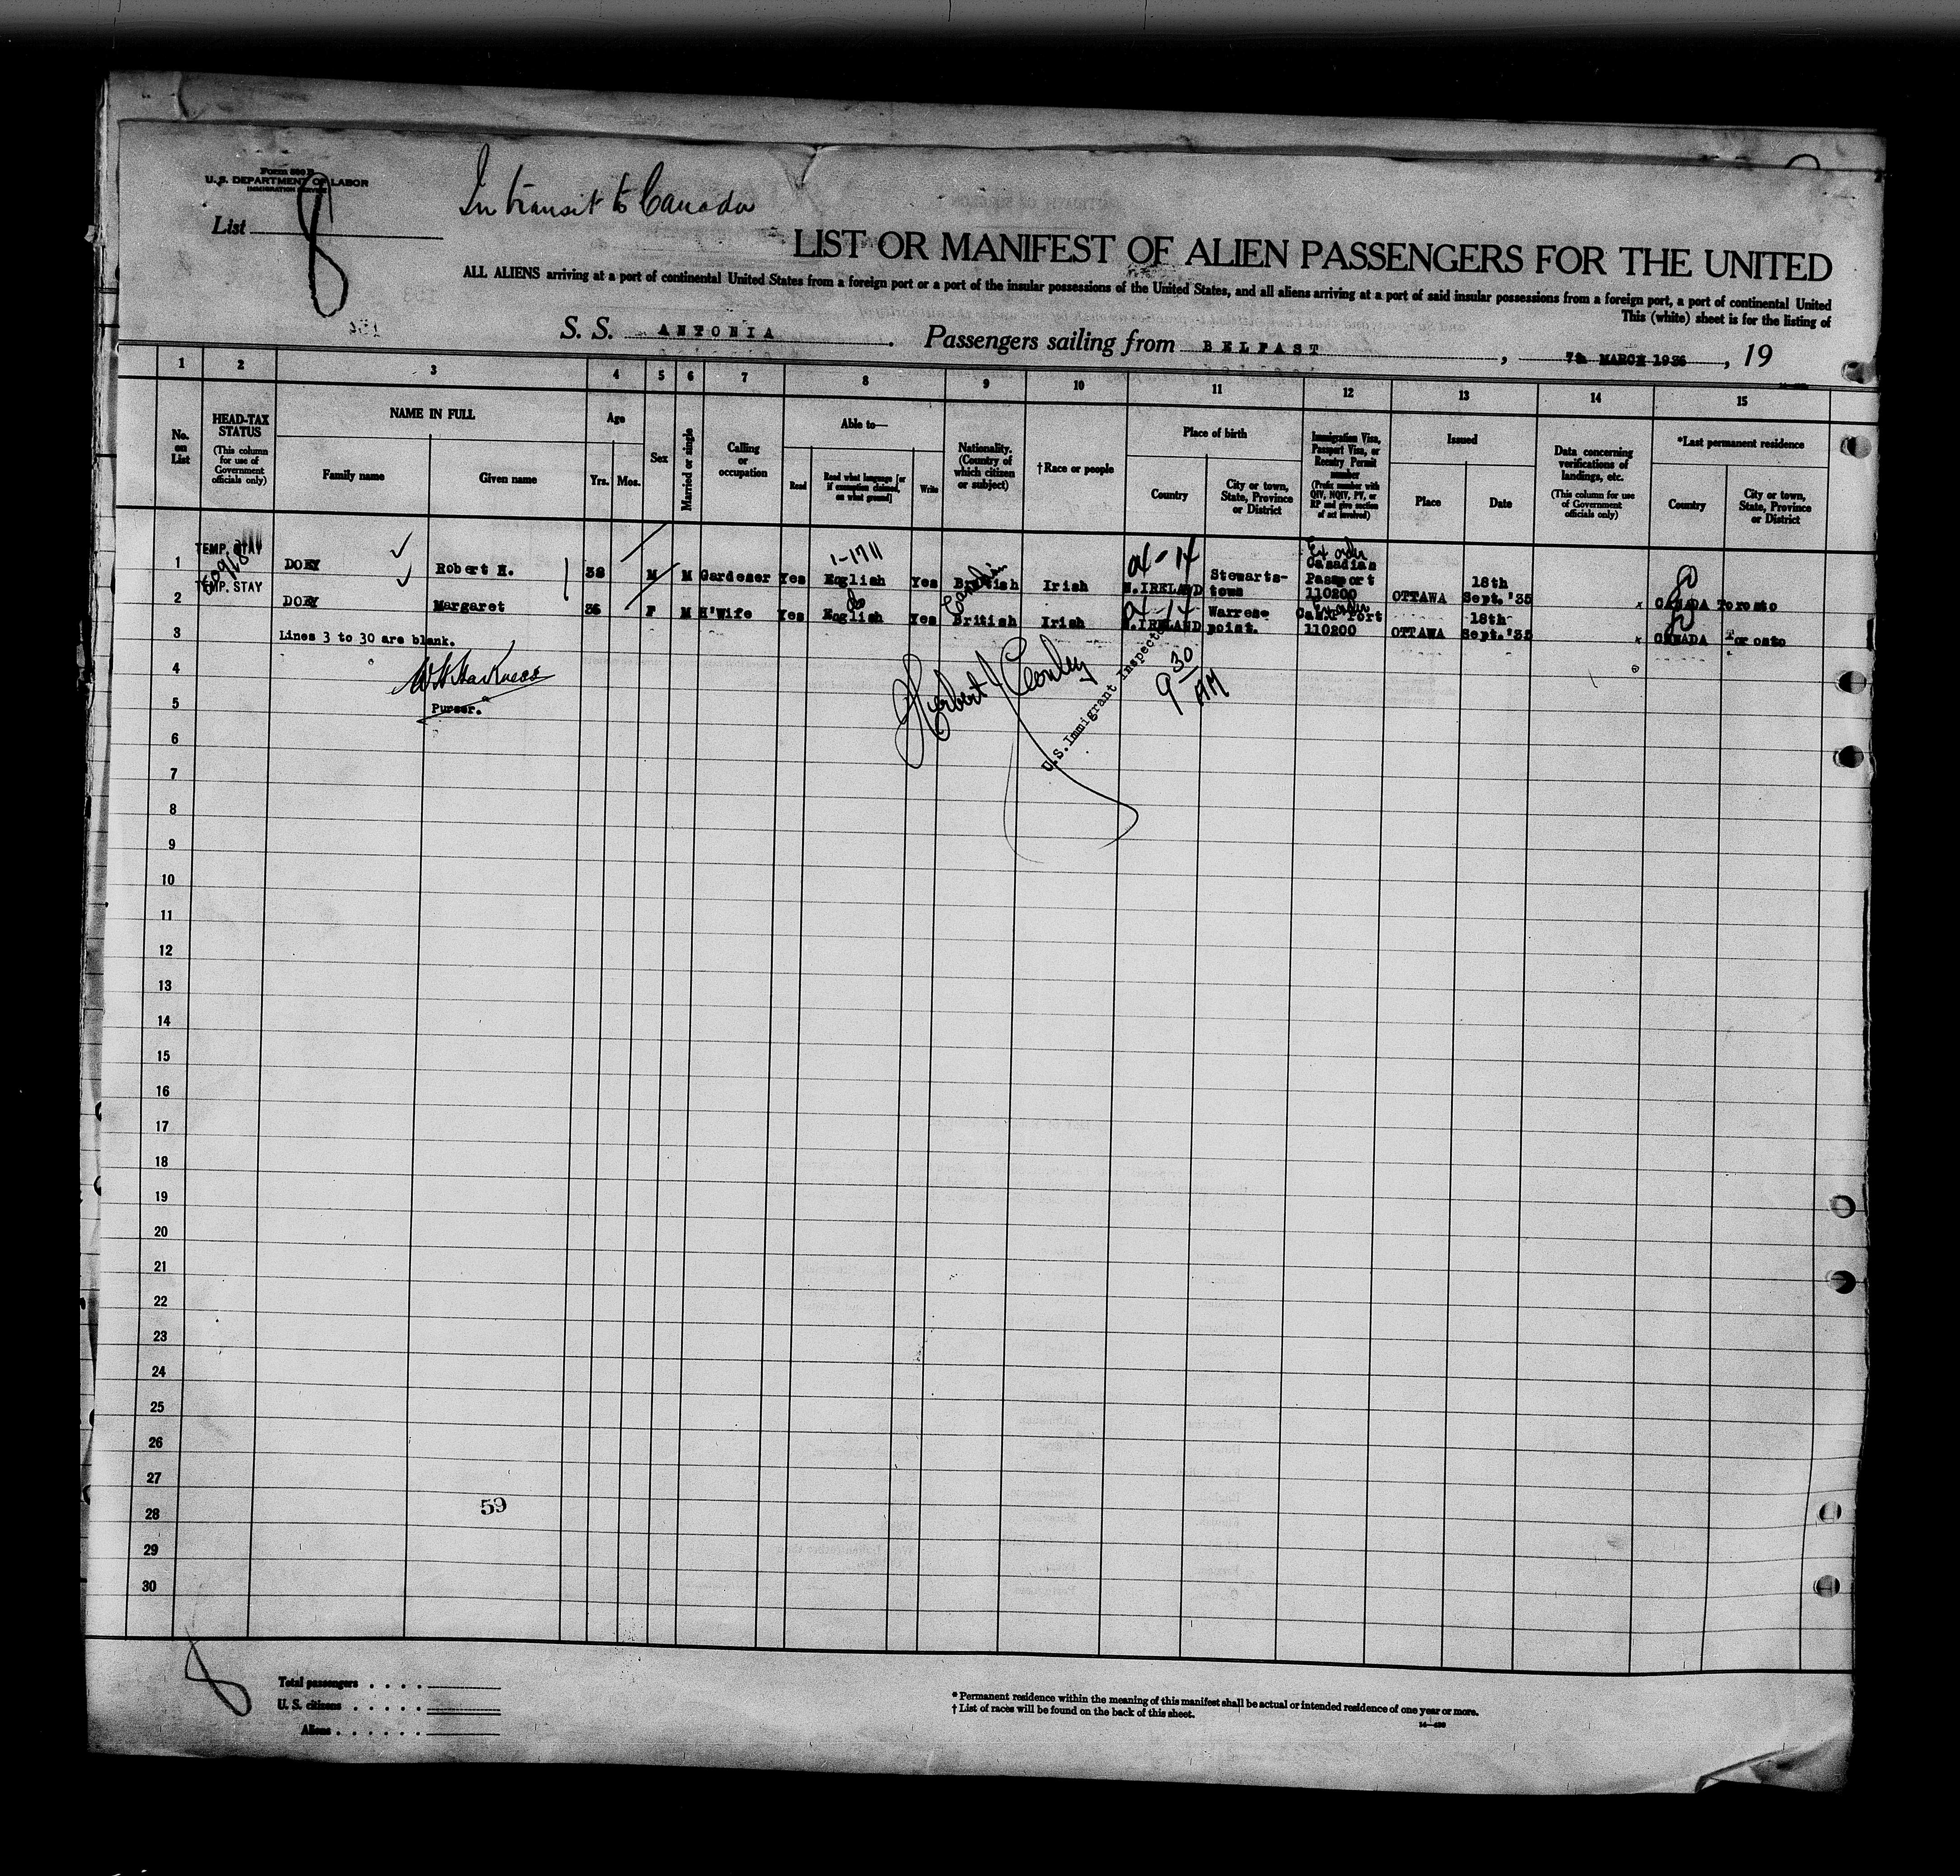 Form 500 B
U. S. DEPARTMENT OF LABOR
IMMIGRATION SERVICE
List 8
In transit to Canada
LIST OR MANIFEST OF ALIEN PASSENGERS FOR THE UNITED
ALL ALIENS arriving at a port of continental United States from a foreign port or a port of the insular possessions of the United States, and all aliens arriving at a port of said insular possessions from a foreign port, a port of continental United
This (white) sheet is for the listing of
S. S. ANTONIA. Passengers sailing from BELFAST, 7th MARCH 1936, 19
1 2 3 4 5 6 7 8 9 10 11 12 13 14 15
No. on List
HEAD-TAX STATUS
(This column for use of Government officials only)
NAME IN FULL
Family name
Given name
Age
Yrs. Mos.
Sex
Married or single
Calling or occupation
Able to—
Read
Read what language [or if exemption claimed, on what ground]
Write
Nationality. (Country of which citizen or subject)
†Race or people
Place of birth
Country
City or town, State, Province or District
Immigration Visa, Passport Visa, or Reentry Permit number
(Prefix number with QIV, NQIV, PV, or RP and give section of act involved)
Issued
Place
Date
Data concerning verifications of landings, etc.
(This column for use of Government officials only)
*Last permanent residence
Country
City or town, State, Province or District
1 TEMP. STAY DOEY Robert H. 38 M M Gardener Yes 1-1711 English Yes British Canadian Irish N.IRELAND Stewarts-town Ex order Canadian Passport 110200 OTTAWA 18th Sept.'35 x CANADA Toronto
2 TEMP. STAY DOEY Margaret 36 F M H'Wife Yes English Yes British Canadian Irish N.IRELAND Warrenpoint. Can.P'Port 110200 OTTAWA 18th Sept.'35 x CANADA Toronto
3 Lines 3 to 30 are blank.
4 W H Harkness
5 Purser.
Herbert J Conley
U.S. Immigrant Inspector
9 30 AM
6
7
8
9
10
11
12
13
14
15
16
17
18
19
20
21
22
23
24
25
26
27
28 59
29
30
8
Total passengers . . . .
U. S. citizens . . . . .
Aliens . . . . . .
* Permanent residence within the meaning of this manifest shall be actual or intended residence of one year or more.
† List of races will be found on the back of this sheet.
14—430